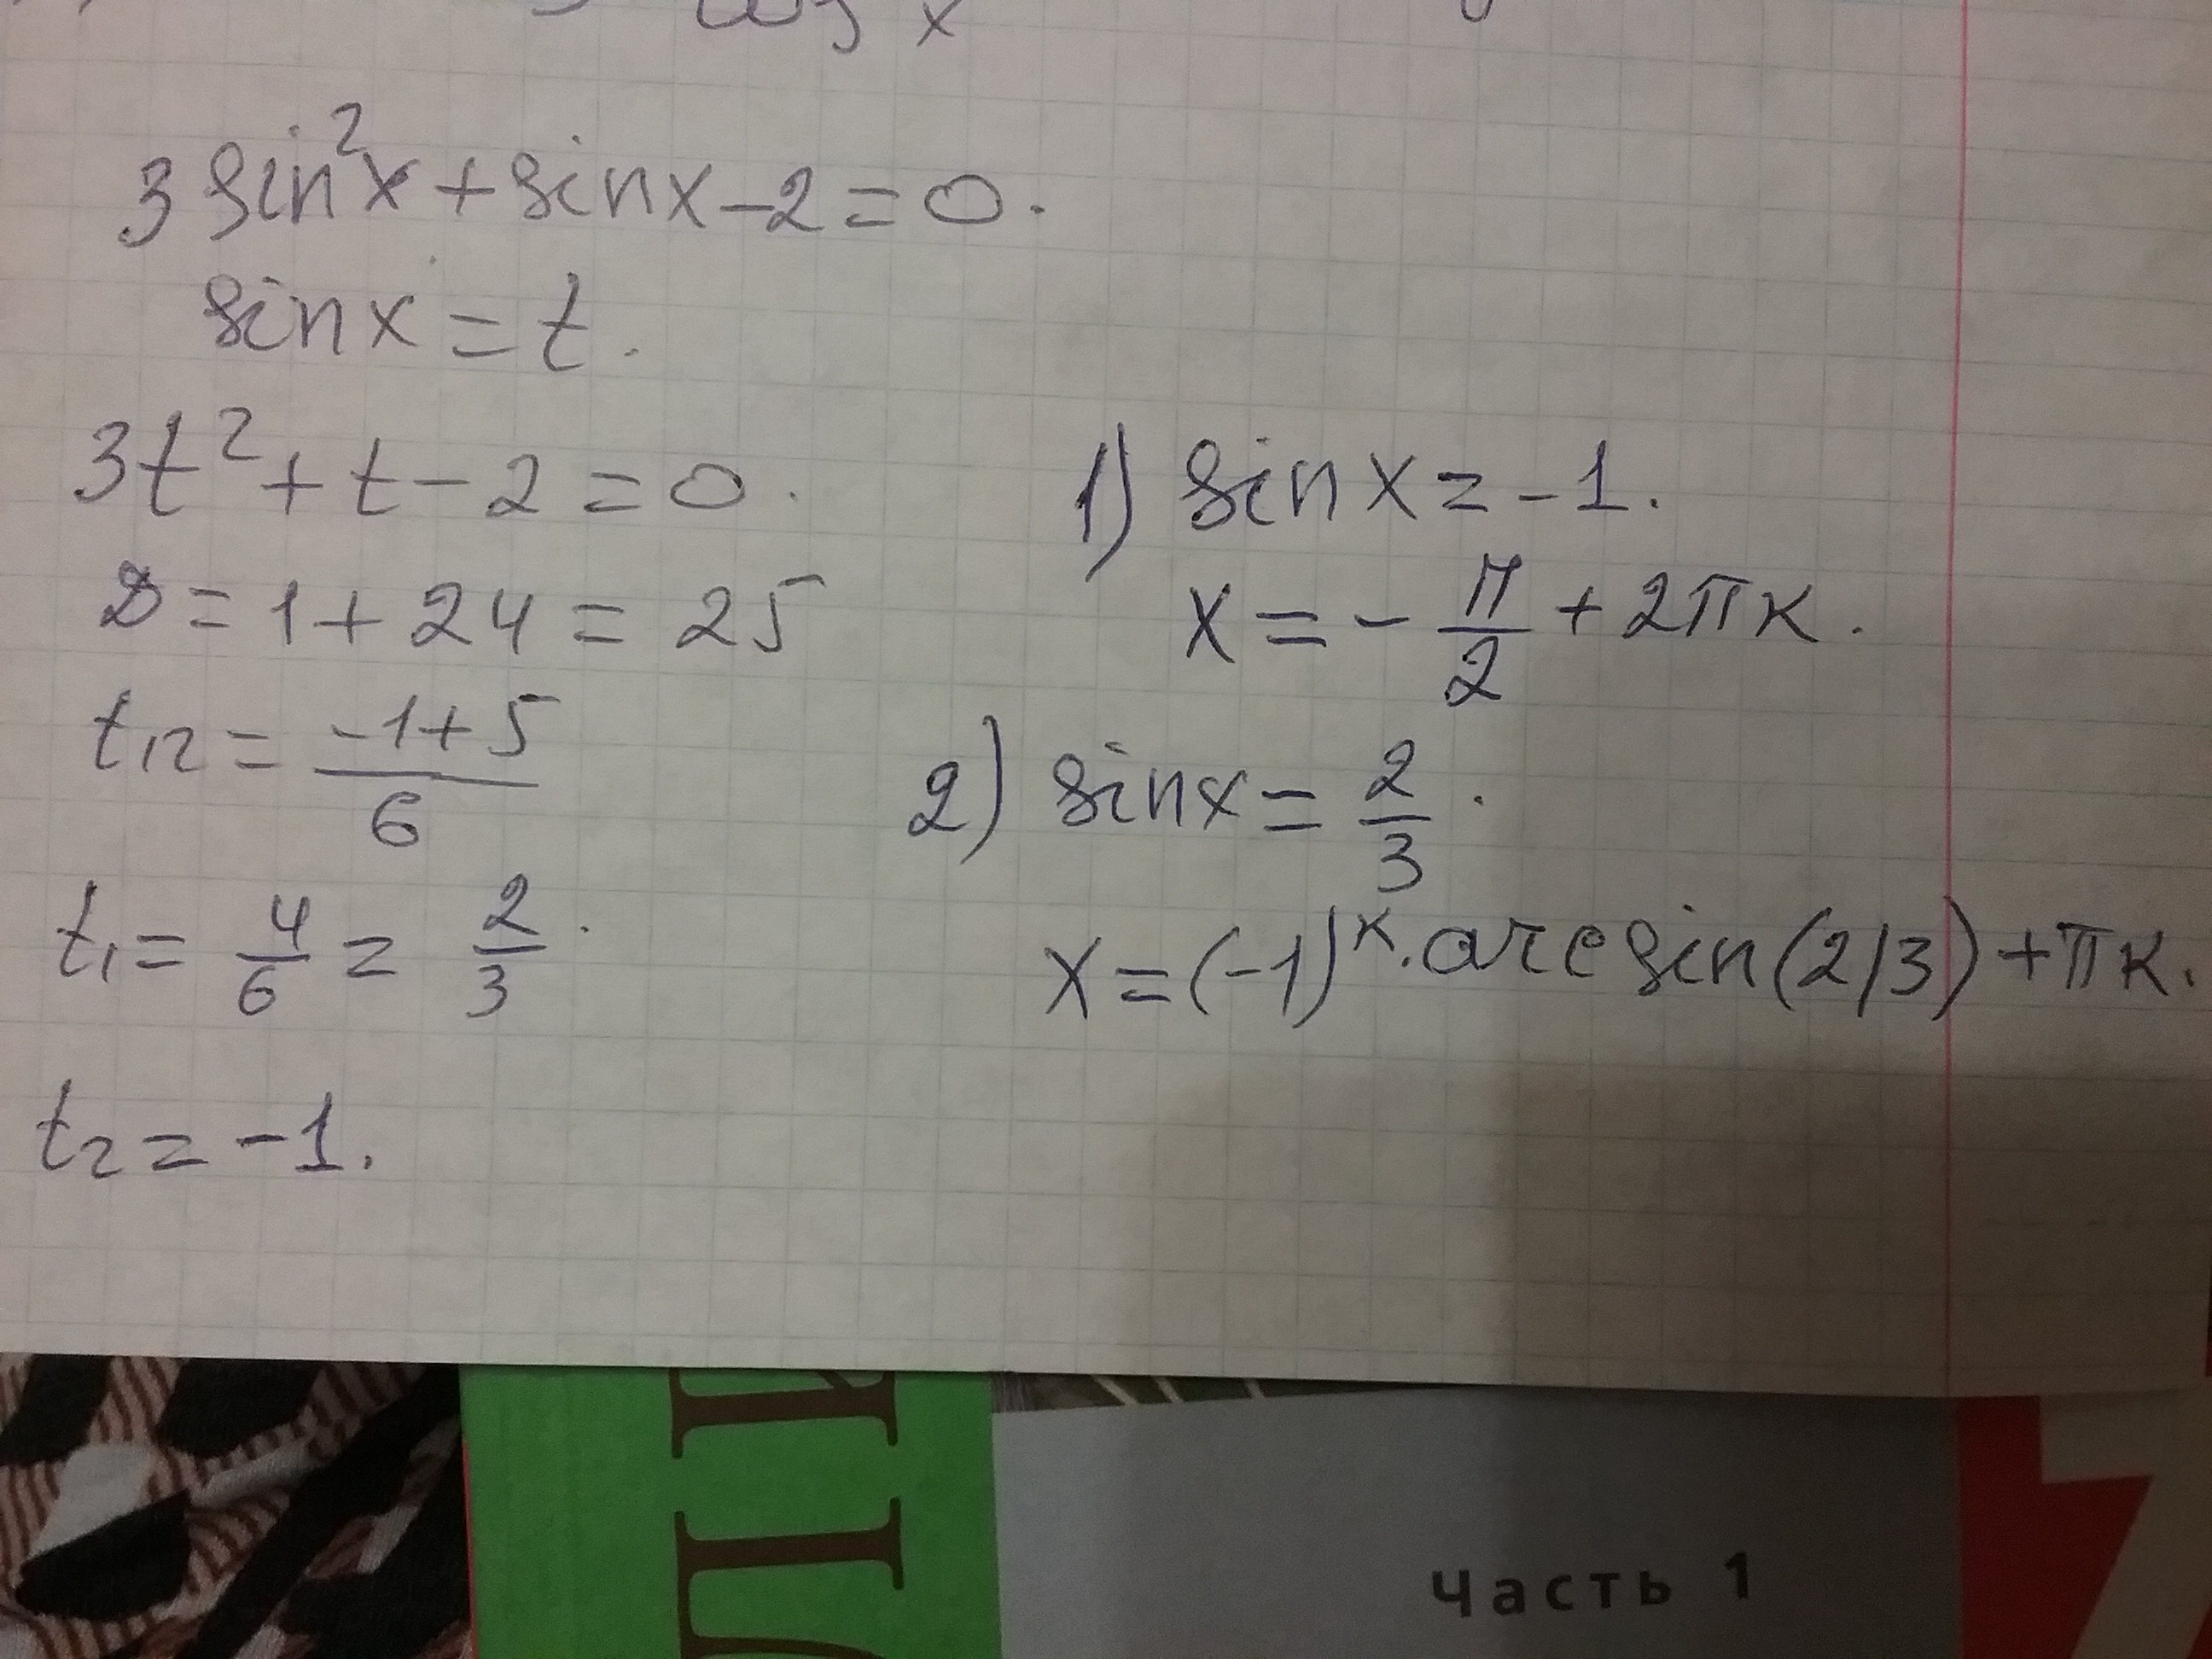 cos x
3 sin²x + sinx - 2 = 0.
sinx = t.
3t² + t - 2 = 0.
D = 1 + 24 = 25
t₁₂ = \frac{-1+5}{6}
t₁ = \frac{4}{6} = \frac{2}{3}.
t₂ = -1.
1) sin x = -1.
x = -\frac{π}{2} + 2πк.
2) sinx = \frac{2}{3}.
x = (-1)ᵏ · arcsin(2/3) + πк.
Часть 1
7